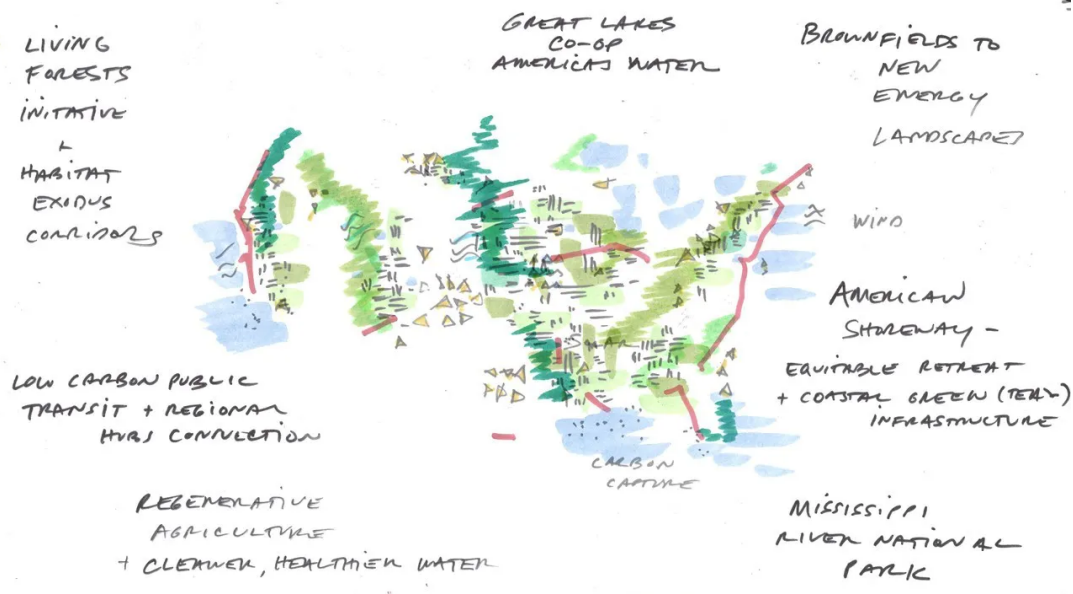 LIVING
FORESTS
INITATIVE
+
HABITAT
EXODUS
CORRIDORS
GREAT LAKES
CO-OP
AMERICAS WATER
BROWNFIELDS TO
NEW
ENERGY
LANDSCAPES
WIND
AMERICAN
SHOREWAY -
EQUITABLE RETREAT
+ COASTAL GREEN
INFRASTUCTURE
SOLAR
LOW CARBON PUBLIC
TRANSIT + REGIONAL
HUBS CONNECTION
CARBON
CAPTURE
REGENERATIVE
AGRICULTURE
+ CLEANER, HEALTHIER WATER
MISSISSIPPI
RIVER NATIONAL
PARK